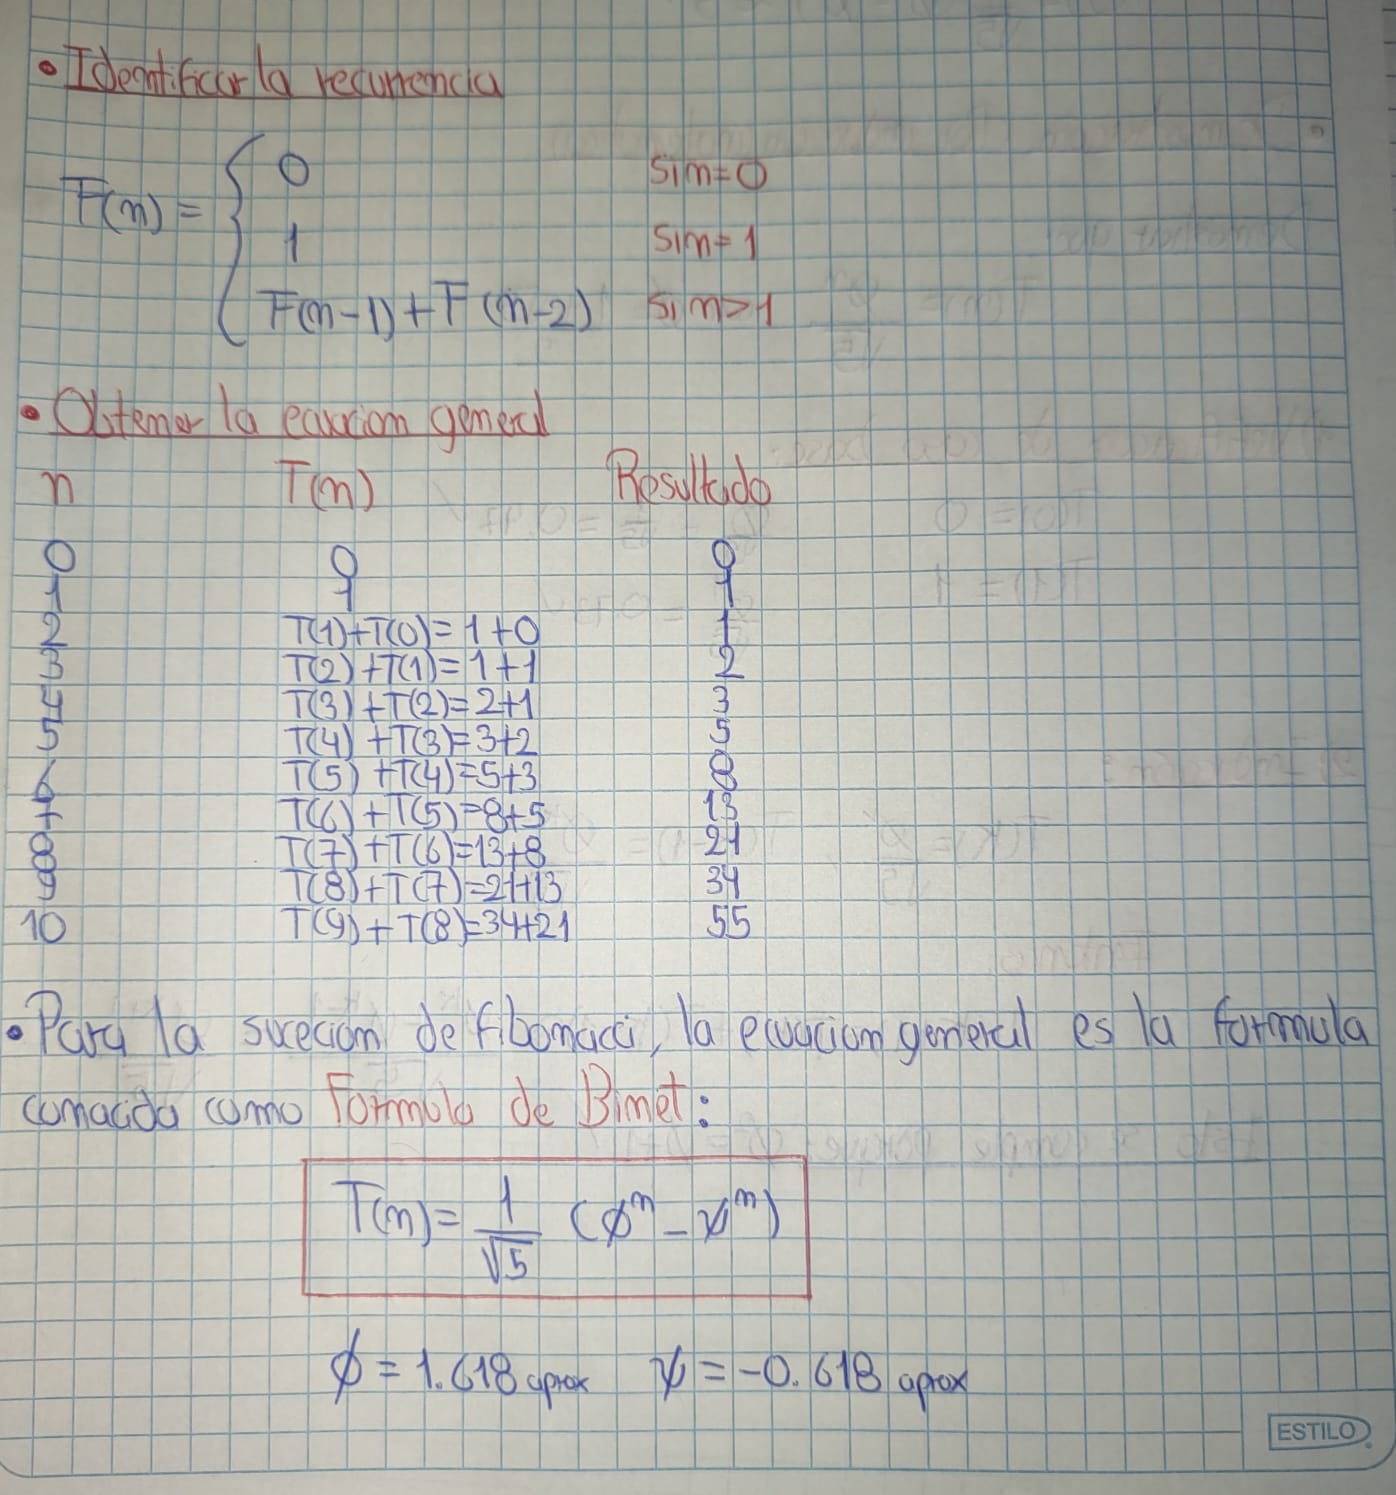 • Identificar la recurrencia
F(n) = { 0 si n=0
1 si n=1
F(n-1)+F(n-2) si n>1
• Obtener la ecuacion general
n T(n) Resultado
0 0 0
1 1 1
2 T(1)+T(0)=1+0 1
3 T(2)+T(1)=1+1 2
4 T(3)+T(2)=2+1 3
5 T(4)+T(3)=3+2 5
6 T(5)+T(4)=5+3 8
7 T(6)+T(5)=8+5 13
8 T(7)+T(6)=13+8 21
9 T(8)+T(7)=21+13 34
10 T(9)+T(8)=34+21 55
• Para la sucecion de fibonacci, la ecuacion general es la formula
conocida como Formula de Binet:
T(n)= 1/√5 (φⁿ - ψⁿ)
φ = 1.618 aprox ψ = -0.618 aprox
ESTILO